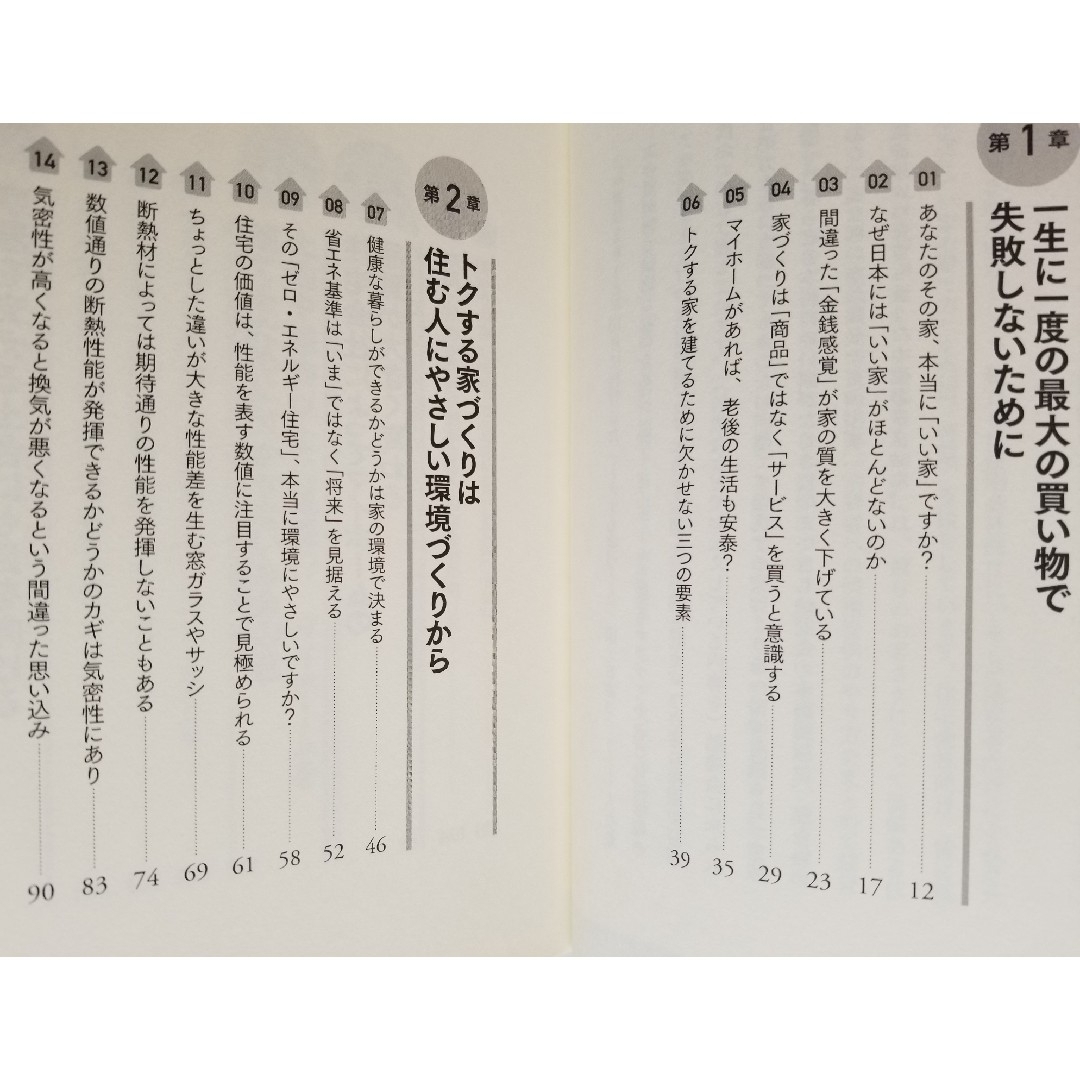 第1章
一生に一度の最大の買い物で
失敗しないために
01 あなたのその家、本当に「いい家」ですか？ 12
02 なぜ日本には「いい家」がほとんどないのか 17
03 間違った「金銭感覚」が家の質を大きく下げている 23
04 家づくりは「商品」ではなく「サービス」を買うと意識する 29
05 マイホームがあれば、老後の生活も安泰？ 35
06 トクする家を建てるために欠かせない三つの要素 39
第2章
トクする家づくりは
住む人にやさしい環境づくりから
07 健康な暮らしができるかどうかは家の環境で決まる 46
08 省エネ基準は「いま」ではなく「将来」を見据える 52
09 その「ゼロ・エネルギー住宅」、本当に環境にやさしいですか？ 58
10 住宅の価値は、性能を表す数値に注目することで見極められる 61
11 ちょっとした違いが大きな性能差を生む窓ガラスやサッシ 69
12 断熱材によっては期待通りの性能を発揮しないこともある 74
13 数値通りの断熱性能が発揮できるかどうかのカギは気密性にあり 83
14 気密性が高くなると換気が悪くなるという間違った思い込み 90